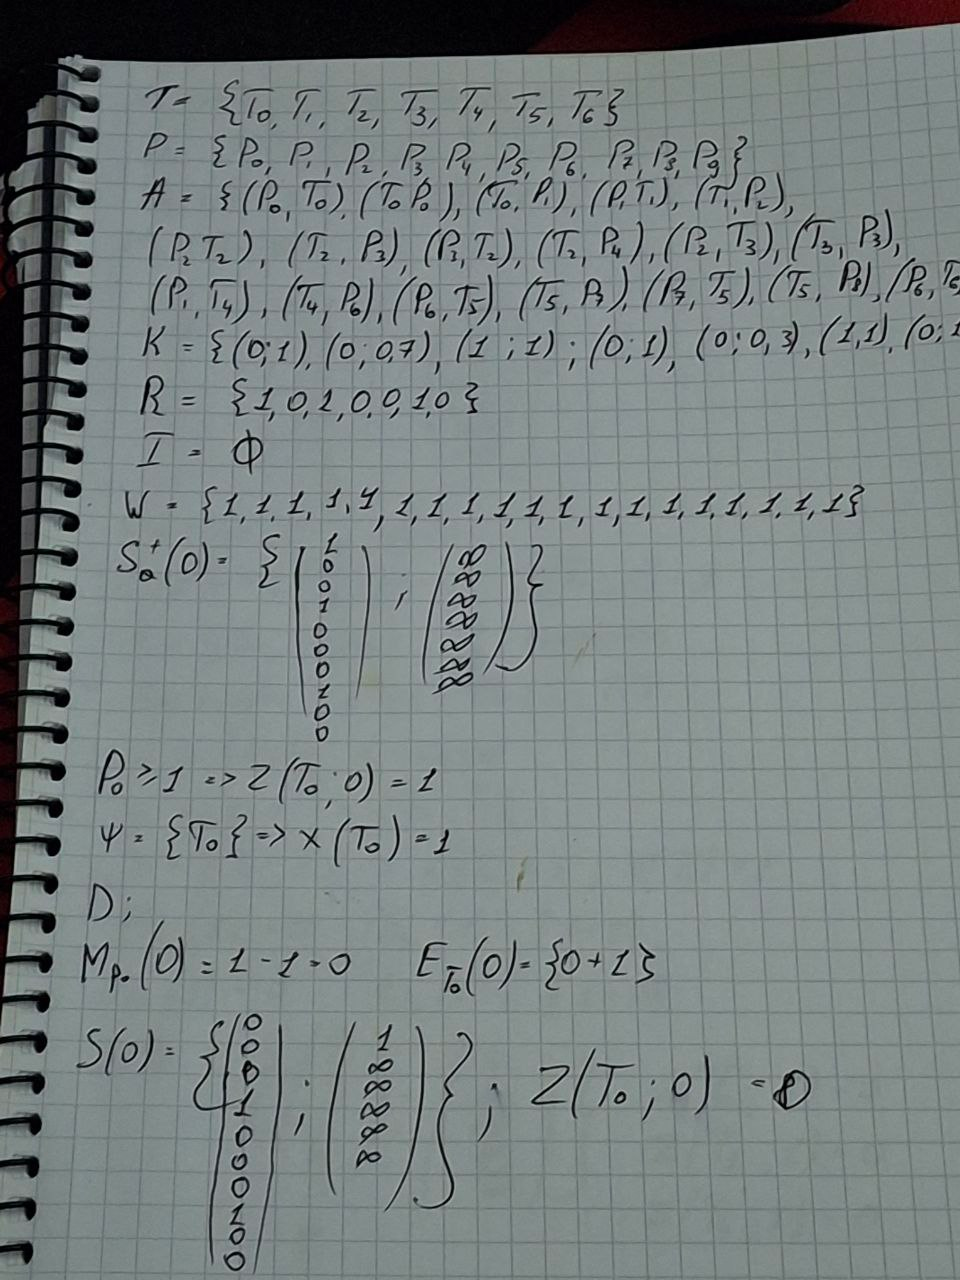 T = {T₀, T₁, T₂, T₃, T₄, T₅, T₆}
P = {P₀, P₁, P₂, P₃ P₄, P₅, P₆, P₇, P₈, P₉}
A = {(P₀, T₀), (T₀ P₀), (T₀, P₁), (P₁ T₁), (T₁, P₂),
(P₂ T₂), (T₂, P₃), (P₃, T₂), (T₂, P₄), (P₂, T₃), (T₃, P₃),
(P₁, T₄), (T₄, P₆), (P₆, T₅), (T₅, P₇), (P₇, T₅), (T₅, P₈), (P₆, T₆
K = {(0;1), (0; 0,7), (1 ; 1) ; (0; 1), (0; 0,3), (1,1), (0; 1
R = {1, 0, 1, 0, 0, 1, 0}
I = Φ
W = {1, 1, 1, 1, 1, 1, 1, 1, 1, 1, 1, 1, 1, 1, 1, 1, 1, 1}
Sₐ⁺(0) = { ( 1 0 0 1 0 0 0 1 0 0 ) ; ( ∞ ∞ ∞ ∞ ∞ ∞ ∞ ) }
P₀ ≥ 1 => Z(T₀; 0) = 1
Ψ = {T₀} => X(T₀) = 1
D;
M_P₀(0) = 1 - 1 = 0 E_T₀(0) = {0 + 1}
S(0) = { ( 0 0 0 1 0 0 0 1 0 0 ) ; ( 1 ∞ ∞ ∞ ∞ ∞ ) } ; Z(T₀; 0) = 0